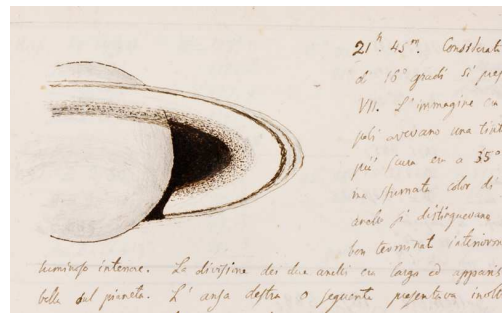 21ʰ. 45ᵐ. Considerat
di 16° gradi si pre
VII. L'immagine
poli avevano una tint
più scura era a 35°
ne sfumata color di
anello si distinguevano
ben terminat interiorm
luminoso interiore. La divisione dei due anelli era larga ed apparis
bella del pianeta. L'ansa destra o seguente presentava inolt